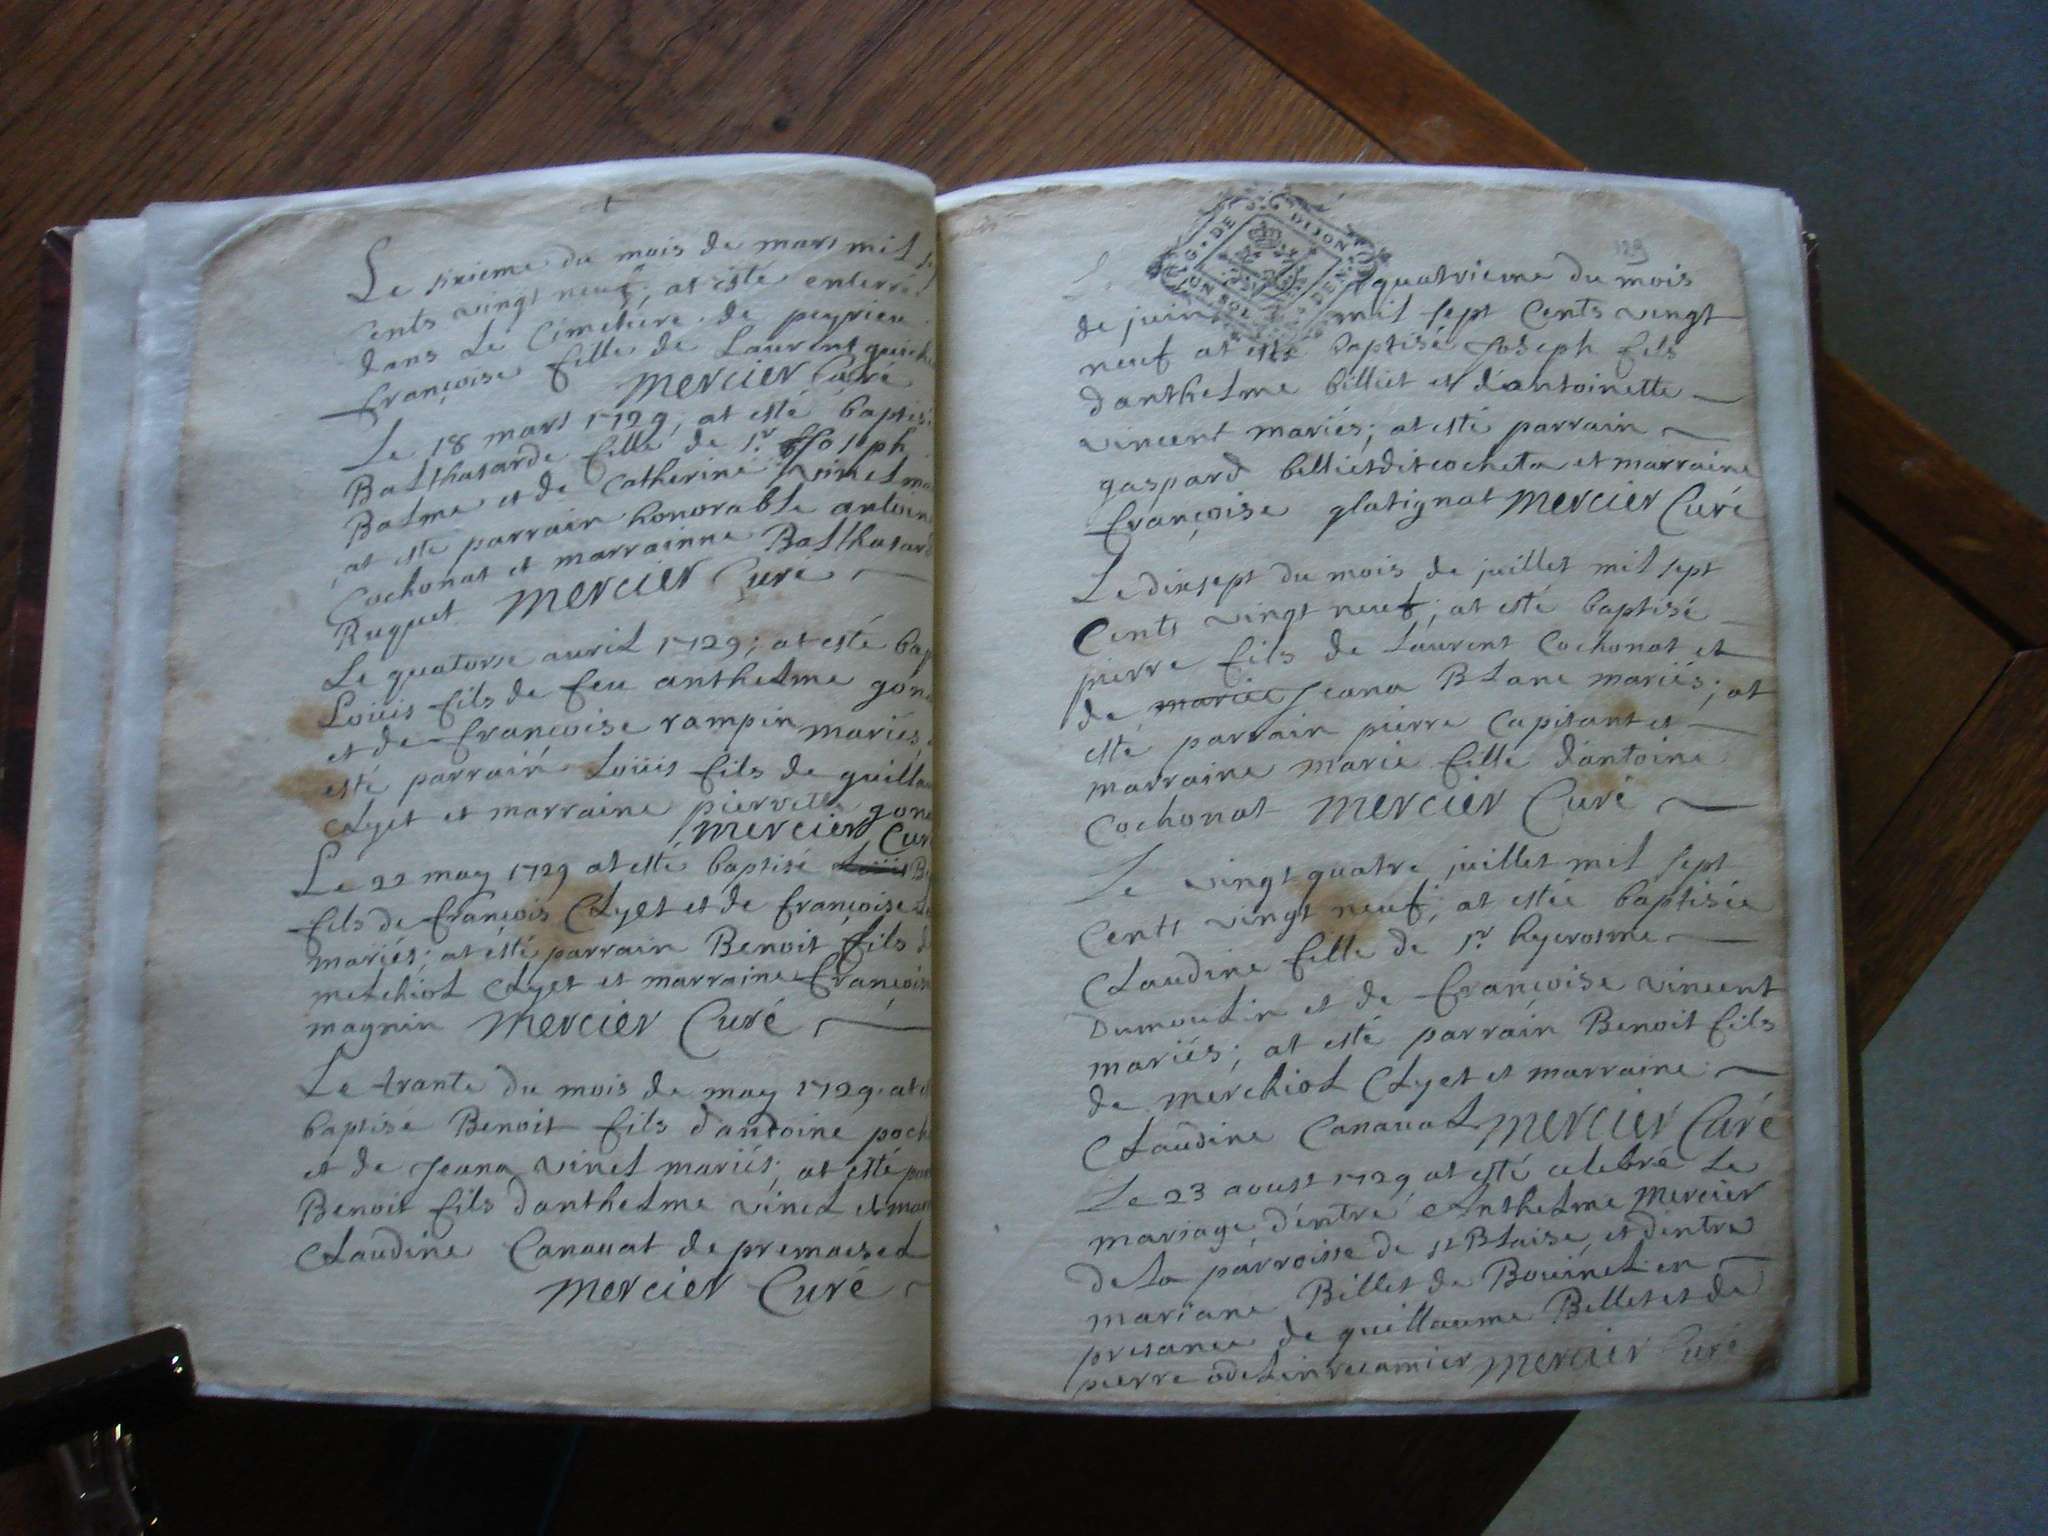 Le sixieme du mois de mars mil
cents vingt neuf, at esté enterré
dans Le Cimetiere de peyrieu
françoise fille de Laurent
Mercier Curé
Le 18 mars 1729, at esté baptisé
Balthasarde fille de Sr Joseph
Balme et de Catherine vinel
at esté parrain honorable antoin
Cochonat et marrainne Balthasard
Ruquet Mercier Curé
Le quatorse avril 1729; at esté bap
Loüis fils de feu anthelme gon
et de françoise rampin mariés
esté parrain Loüis fils de guillau
Clyet et marraine pierrette gon
Mercier Cur
Le 22 may 1729 at esté baptisé Loüis B
fils de françois Clyet et de françoise
mariés; at esté parrain Benoit fils d
melchiol Clyet et marraine françois
magnin Mercier Curé
Le trante du mois de may 1729. at e
baptisé Benoit fils d'antoine poch
et de Jeana vinel mariés; at esté par
Benoit fils d'anthelme vinel et mar
Claudine Canavat de premaesel
Mercier Curé
129
G. DE DIJON
Le quatrieme du mois
de juin mil sept Cents vingt
neuf at esté baptisé Joseph fils
d'anthelme billiet et d'antoinette
vincent mariés; at esté parrain
gaspard billiet dit cocheta et marraine
françoise glatignat Mercier Curé
Le dixsept du mois de juillet mil sept
Cents vingt neuf; at esté baptisé
pierre fils de Laurent Cochonat et
de mariée Jeana Blanc mariés; at
esté parrain pierre Capitant et
marraine marie fille d'antoine
Cochonat Mercier Curé
Le vingt quatre juillet mil sept
Cents vingt neuf; at estée baptisée
Claudine fille de Sr hyerosme
Dumoulin et de françoise vincent
mariés; at esté parrain Benoit fils
de merchiol Clyet et marraine
Claudine Canavat Mercier Curé
Le 23 aoust 1729 at esté celebré Le
mariage d'entre Anthelme Mercier
de La parroisse de St Blaise, et d'entre
mariane Billet de Bovinel en
presance de guillaume Billet et de
pierre odelin recamier Mercier Curé